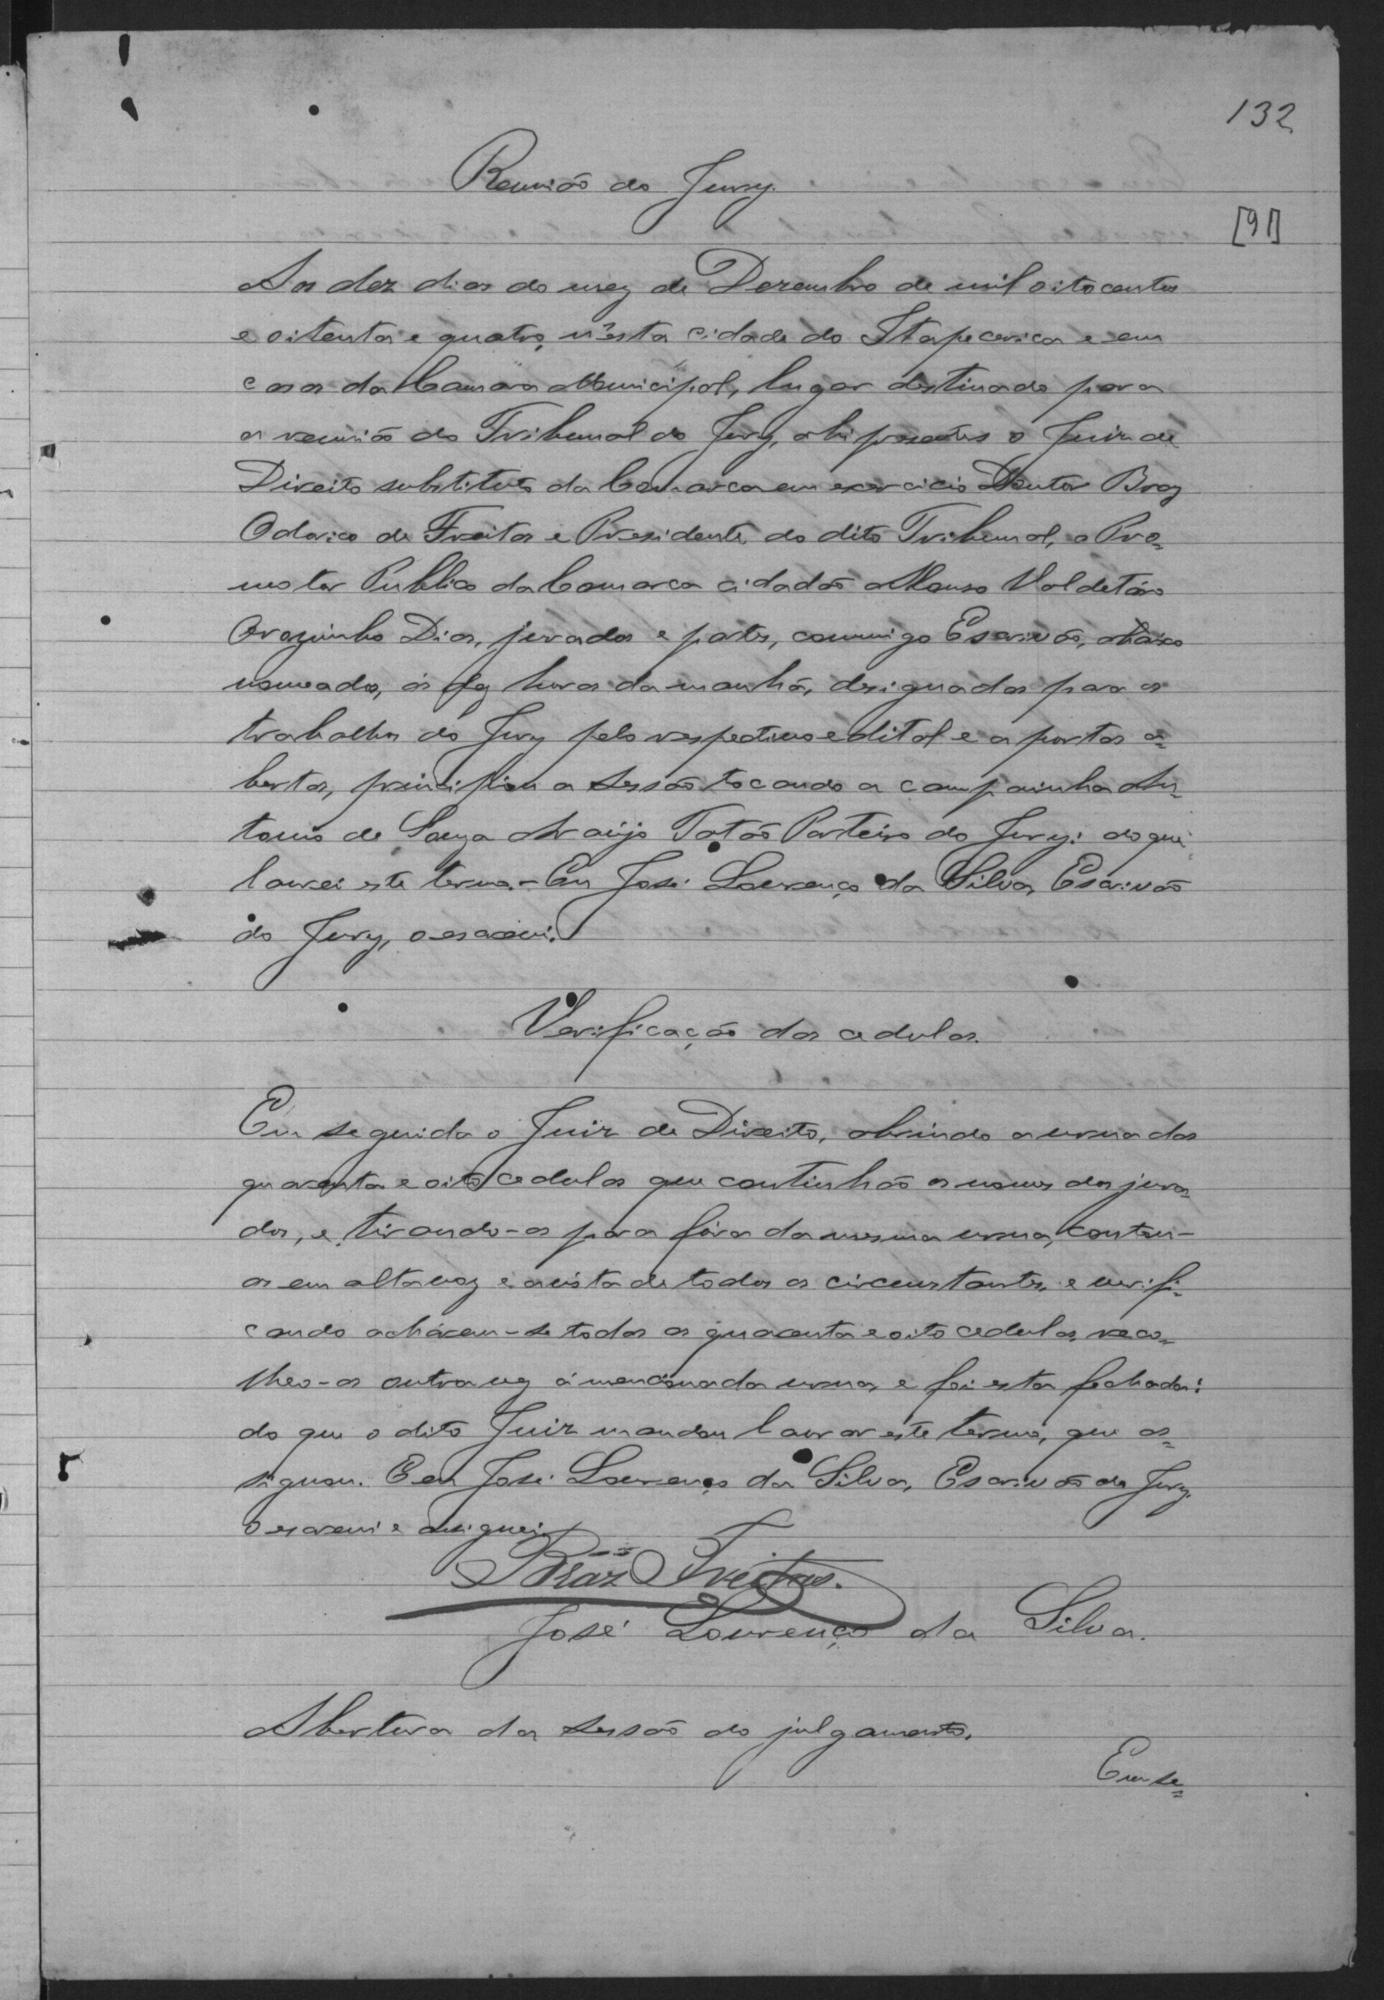 132
Reunião do Jury.
[91]
Aos dez dias do mez de Dezembro de mil oitocentos
e oitenta e quatro, n'esta cidade do Itapecerica e em
casa da Camara Municipal, lugar destinado para
a reunião do Tribunal do Jury, ahi presentes o Juiz de
Direito substituto da Comarca em exercicio Doutor Braz
Odorico de Freitas e Presidente do dito Tribunal, o Pro=
motor Publico da Comarca cidadão Affonso Valdetáro
Dias, jurados e partes, commigo Escrivão, abaixo
nomeado, ás dez horas da manhã, designadas para os
trabalhos do Jury pelo respectivo edital e a portas a=
bertas, principiou a sessão tocando a campainha An=
tonio de Souza Araujo Tatão Porteiro do Jury: do que
lavrei este termo.- Eu José Lourenço da Silva, Escrivão
do Jury, o escrevi.
Verificação das cedulas.
Em seguida o Juiz de Direito, abrindo a urna das
quarenta e oito cedulas que continhão os nomes dos jura=
dos, e, tirando-as para fóra da mesma urna, contou-
as em alta voz e a vista de todos os circunstantes, e verifi=
cando acharem-se todas as quarenta e oito cedulas, reco=
lheo-as outra vez á mencionada urna, e foi esta fechada:
do que o dito Juiz mandou lavrar este termo, que as=
signou. E eu José Lourenço da Silva, Escrivão do Jury.
o escrevi e assignei.
Bráz Freitas.
José Lourenço da Silva.
Abertura da sessão do julgamento.
Em se=